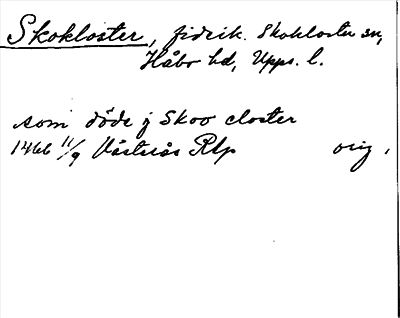 Skokloster, fideik. Skokloster sn,
Håbo hd, Upps. l.
som döde j Skoo closter
1466 11/9 Västerås Rtp orig.